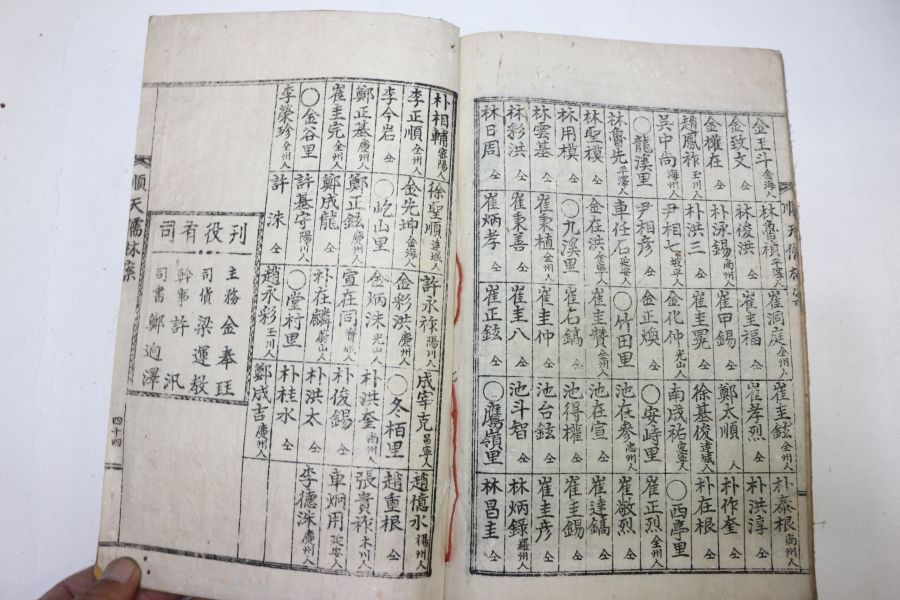 金王斗 金海人
金致文 仝
金權在 仝
趙鳳祚 玉川人
吳中尚 海州人
○龍溪里
林魯先 平澤人
林聖模 仝
林用模 仝
林雲基 仝
林彩洪 仝
林日周 仝
林魯禎 平澤人
林俊洪 仝
朴泳錫 尚州人
朴洪三 仝
尹相七 坡平人
尹相彦 仝
車任石 延安人
金在洪 金寧人
○九溪里
崔秉植 全州人
崔秉善 仝
崔炳孝 仝
崔洞庭 全州人
崔圭福 仝
崔甲錫 仝
崔圭冕 仝
金化仲 光山人
金正煥 仝
○竹田里
崔圭贊 全州人
崔石鎬 仝
崔圭仲 仝
崔圭八 仝
崔正鉉 仝
崔圭鉉 全州人
崔孝烈 仝
鄭太順 人
徐基俊 達城人
南成祐 宜寧人
○安峙里
池在參 忠州人
池在宣 仝
池得權 仝
池台鉉 仝
池斗智 仝
○鷹嶺里
朴泰根 尚州人
朴洪淳 仝
朴作奎 仝
朴在根 仝
○西亭里
崔正烈 全州人
崔敬烈 仝
崔達鎬 仝
崔圭錫 仝
崔圭彦 仝
林炳錄 羅州人
林昌圭 仝
朴相輔 密陽人
李正順 全州人
李今岩 仝
鄭正基 慶州人
崔圭完 全州人
○金谷里
李榮珍 全州人
徐聖順 達城人
金先坤 金海人
○屹山里
鄭正鉉 慶州人
鄭成龍 仝
許基守 陽川人
許洙 仝
許永祚 陽川人
金彩洪 慶州人
金炳洙 光山人
宣在同 寶城人
朴在麟 蔚山人
○堂村里
趙永彩 玉川人
成宰克 昌寧人
○冬栢里
朴洪奎 尚州人
朴俊錫 仝
朴洪太 仝
朴桂水 仝
鄭成吉 慶州人
趙億水 楊州人
趙重根 仝
張貴祚 木川人
車炯用 延安人
李德洙 慶州人
刊役有司
主務 金奉珏
司貨 梁運毅
幹事 許汎
司書 鄭逈澤
順天儒林案
四十四